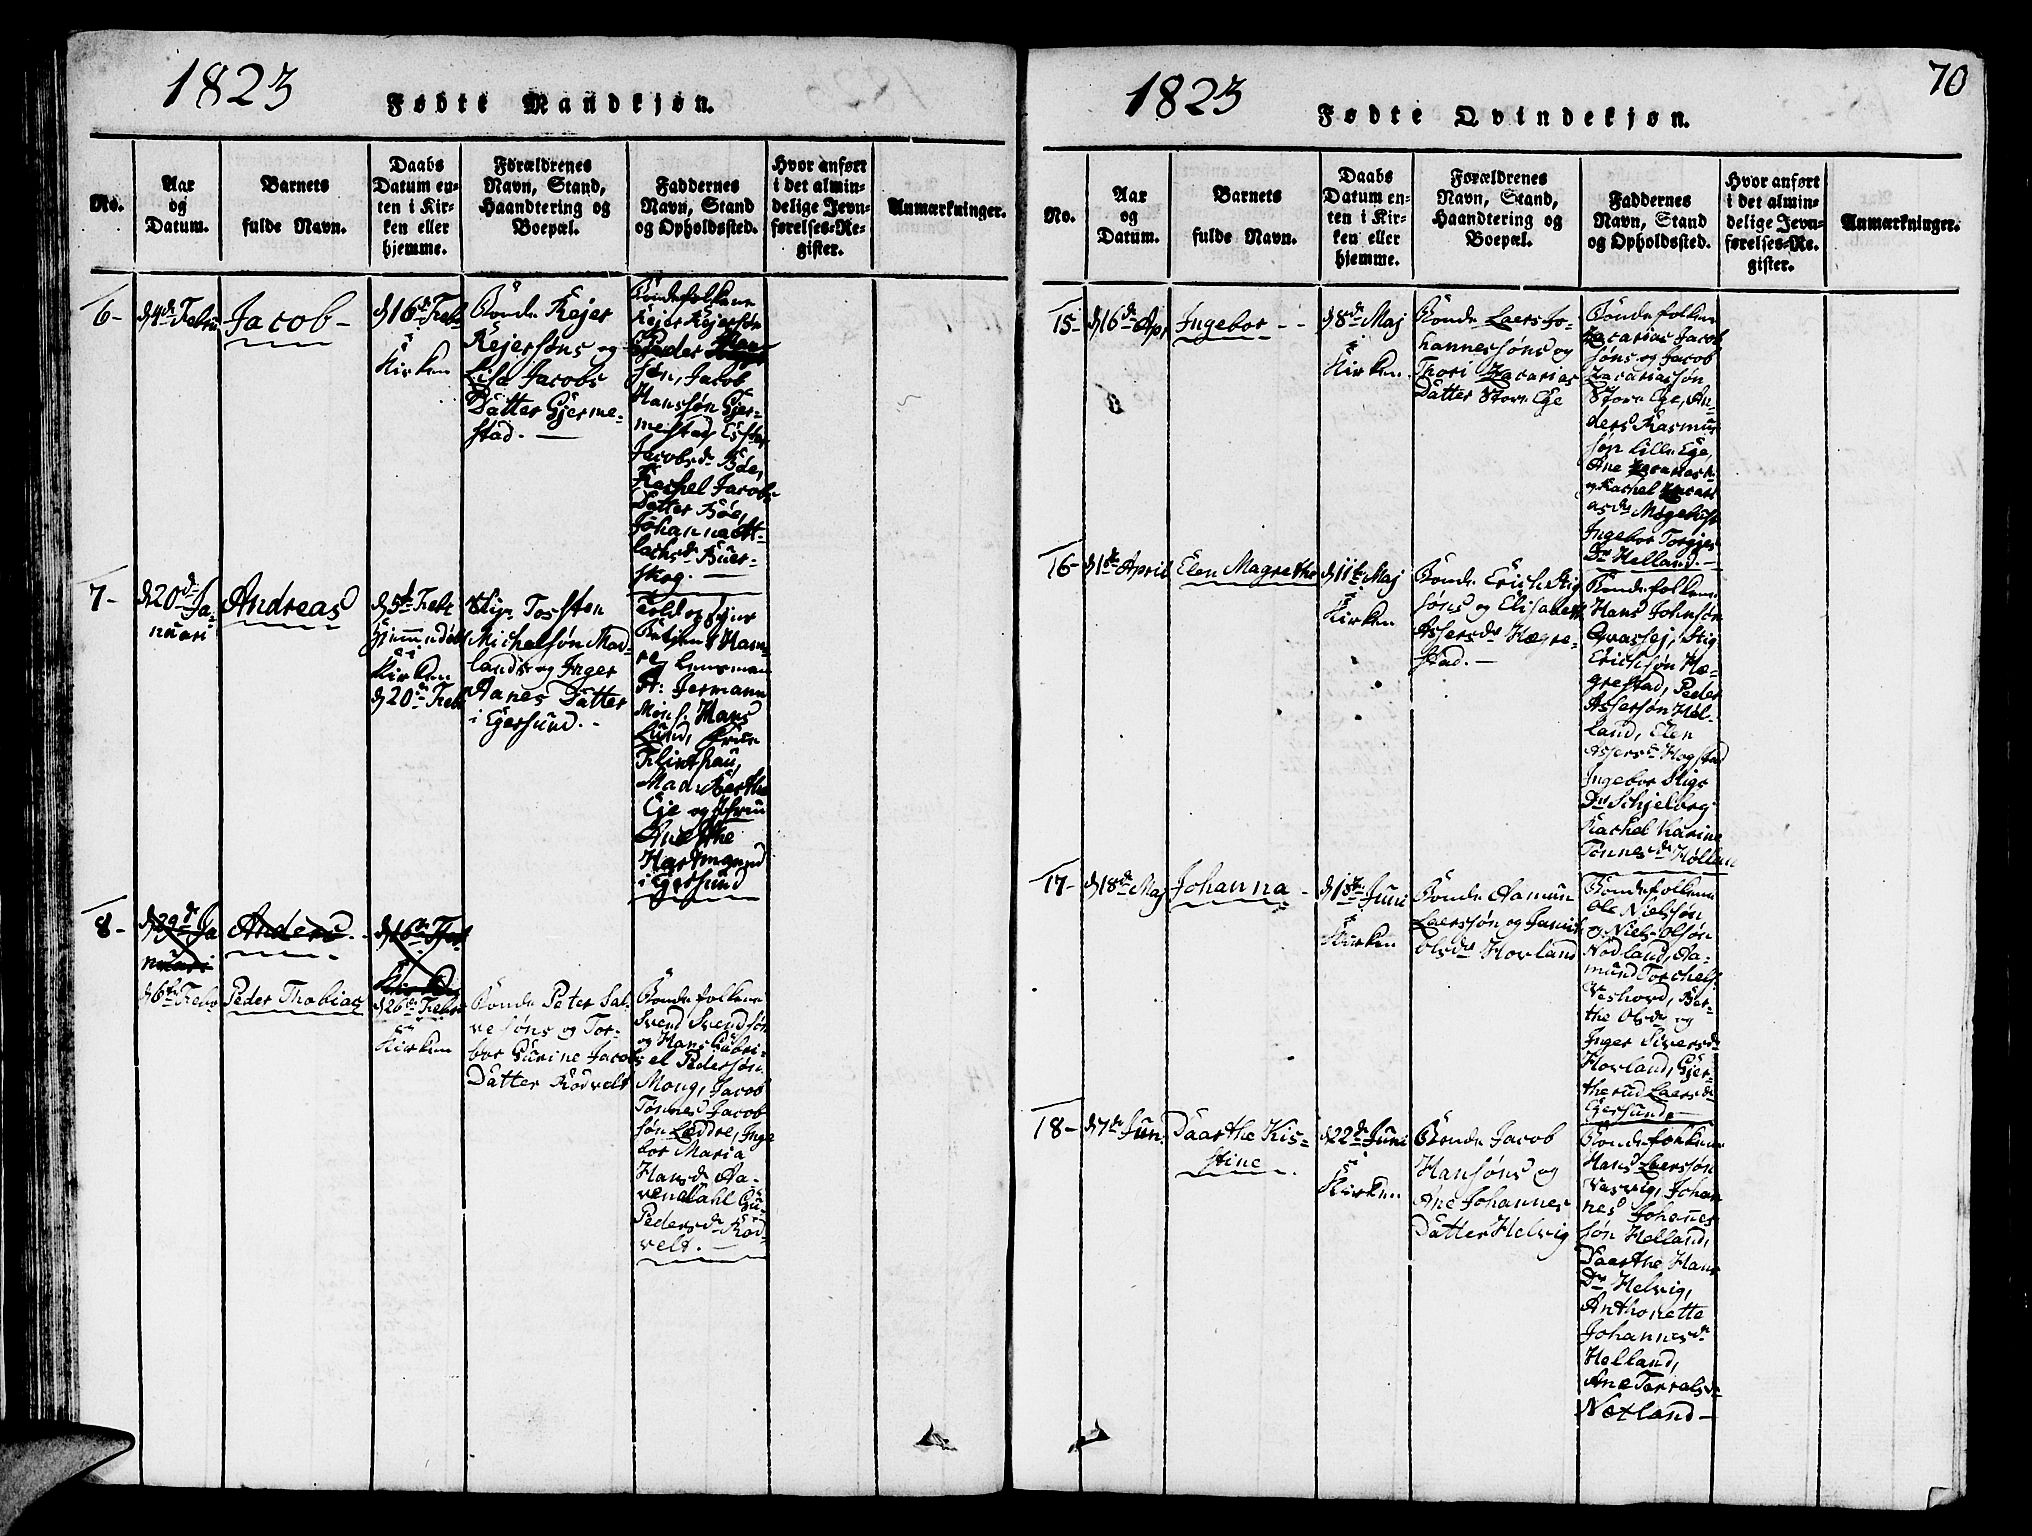 1823
Fødte Mandkjøn.
No.
Aar
og
Datum.
Barnets
fulde Navn.
Daabs
Datum en-
ten i Kir-
ken eller
hjemme.
Forældrenes
Navn, Stand,
Haandtering og
Boepæl.
Faddernes
Navn, Stand
og Opholdssted.
Hvor anført
i det almin-
delige Jevn-
førelses-Re-
gister.
Anmærkninger.
6-
d 4de Febru
Jacob-
d 16de Feb
i
Kirken
Bonde Rejer
Rejersøns og
Lisa Jacobs
Datter Gjerme-
stad. -
Bondefolkene
Rejer Rejersøn
Peder
søn, Jacob
Hanssøn Gjer-
mestad, Ester
Jacobsdr Bøe,
Rachel Jacobs
Datter Bøe,
Johanna At-
lachsdr Buer-
skog. -
7-
d 20de Ja-
nuari
Andreas
d 5te Febr
hjemmedøbt
i
Kirken
d 20de Febr
Torsten
Michelsøn Mad-
lands og Inger
Aanes Datter
i Egersund. -
Betjent Ham-
re, Lensman
Fr: Jermann
Mons. Hans
Lund, Frue
Flinthau,
Mad. Berthe
Eje og Jfru
Anethe
Hartmann
i Egersund
8-
d 29de Ja
nuari
Anders -
d 16de Feb
Kirken
d 6te Febr
Peder Thobias
d 26de Febr
i
Kirken
Bonde Peter Sal-
vesøns og Tor-
bor Gurine Jacobs
Datter Rødvelt
Bondefolkene
Svend Svendsøn
og Hans Gabri-
el Pedersøn
Mong, Jacob
Tønnes Jacob
søn Leddre, Inge
bor Maria
Hansdr Aa-
vendahl Gu-
Pedersdr Rød-
velt. -
1823
70
Fødte Qvindekjøn.
No.
Aar
og
Datum.
Barnets
fulde Navn.
Daabs
Datum en-
ten i Kir-
ken eller
hjemme.
Forældrenes
Navn, Stand,
Haandtering og
Boepæl.
Faddernes
Navn, Stand
og Opholdssted.
Hvor anført
i det almin-
delige Jevn-
førelses-Re-
gister.
Anmærkninger.
15-
d 16de Apr
Ingebor - -
d 8de Maj
i
Kirken
Bonde Laers Jo-
hannessøns og
Thori Zacarias
Datter Store Ege
Bondefolkene
Zacarias Jacob
søns og Jacob
Zacariassøn
Store Ege, An-
ders Rasmus
søn Lille Ege,
Ane
og Rachel Zacari
asdr
Ingebor Torgjes
Dr Helland. -
16-
d 1te April
Elen Magrethe
d 11te Maj
i
Kirken
Bonde Erich Stig
søns og Elisabeth
Assersdr Hægre-
stad. -
Bondefolkene
Hans Johnsøn
Qvassej, Stig
Erichsøn Hæ-
grestad, Peder
Assersøn Hel-
land, Elen
Assersdr Hogstad
Ingebor Stigs
Dr Schjelbreg
Rachel Karine
Tønnesdr Hølland
17-
d 18de Maj
Johanna -
d 1te Juni
i
Kirken
Bonde Aamun
Laerssøn og Jannik
Olsdr Hovland
Bondefolkene
Ole Nielsøn
og Niels Olsøn
Nodland, Aa-
mund Torchels
Veshovd, Ber-
the Olsdr og
Inger Siversdr
Hovland, Gjer-
therud Laersdr
Egersund -
18-
d 7de Jun.
Daarthe Kis-
stine -
d 22de Juni
i
Kirken
Bonde Jacob
Hansøns og
Ane Johannes
Datter Helvig
Bondefolkene
Hans Laerssøn
Vasvig, Johan
nes Johanes
søn Helland,
Daarthe Hans
Dr Helvig,
Anthonette
Johannesdr
Helland,
Ane Tarralsdr
Netland -